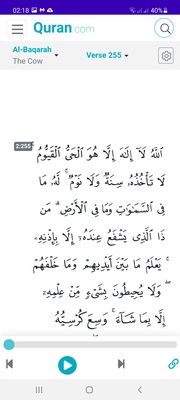 02:18
81%
Quran.com
Al-Baqarah
The Cow
Verse 255
2:255
ٱللَّهُ لَآ إِلَـٰهَ إِلَّا هُوَ ٱلْحَىُّ ٱلْقَيُّومُ ۚ
لَا تَأْخُذُهُۥ سِنَةٌ وَلَا نَوْمٌ ۚ لَّهُۥ مَا
فِى ٱلسَّمَـٰوَٰتِ وَمَا فِى ٱلْأَرْضِ ۗ مَن
ذَا ٱلَّذِى يَشْفَعُ عِندَهُۥٓ إِلَّا بِإِذْنِهِۦ
ۚ يَعْلَمُ مَا بَيْنَ أَيْدِيهِمْ وَمَا خَلْفَهُمْ
ۖ وَلَا يُحِيطُونَ بِشَىْءٍ مِّنْ عِلْمِهِۦٓ
إِلَّا بِمَا شَآءَ ۚ وَسِعَ كُرْسِيُّهُ